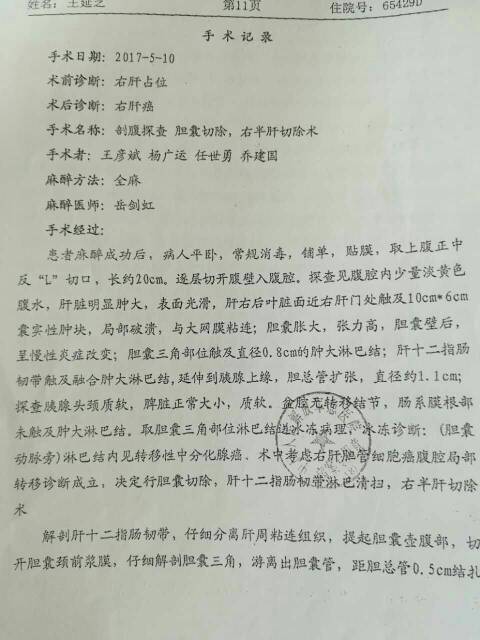 姓名：王延之 第11页 住院号：65429D
手术记录
手术日期：2017-5-10
术前诊断：右肝占位
术后诊断：右肝癌
手术名称：剖腹探查 胆囊切除，右半肝切除术
手术者：王彦斌 杨广运 任世勇 乔建国
麻醉方法：全麻
麻醉医师：岳剑虹
手术经过：
患者麻醉成功后，病人平卧，常规消毒，铺单，贴膜，取上腹正中
反“L”切口，长约20cm。逐层切开腹壁入腹腔。探查见腹腔内少量淡黄色
腹水，肝脏明显肿大，表面光滑，肝右后叶脏面近右肝门处触及10cm*6cm
囊实性肿块，局部破溃，与大网膜粘连；胆囊胀大，张力高，胆囊壁后，
呈慢性炎症改变；胆囊三角部位触及直径0.8cm的肿大淋巴结；肝十二指肠
韧带触及融合肿大淋巴结,延伸到胰腺上缘，胆总管扩张，直径约1.1cm；
探查胰腺头颈质软，脾脏正常大小，质软。盆腔无转移结节，肠系膜根部
未触及肿大淋巴结。取胆囊三角部位淋巴结送冰冻病理，冰冻诊断：（胆囊
动脉旁)淋巴结内见转移性中分化腺癌、术中考虑右肝胆管细胞癌腹腔局部
转移诊断成立，决定行胆囊切除，肝十二指肠韧带淋巴清扫，右半肝切除
术
解剖肝十二指肠韧带，仔细分离肝周粘连组织，提起胆囊壶腹部，切
开胆囊颈前浆膜，仔细解剖胆囊三角，游离出胆囊管，距胆总管0.5cm结扎